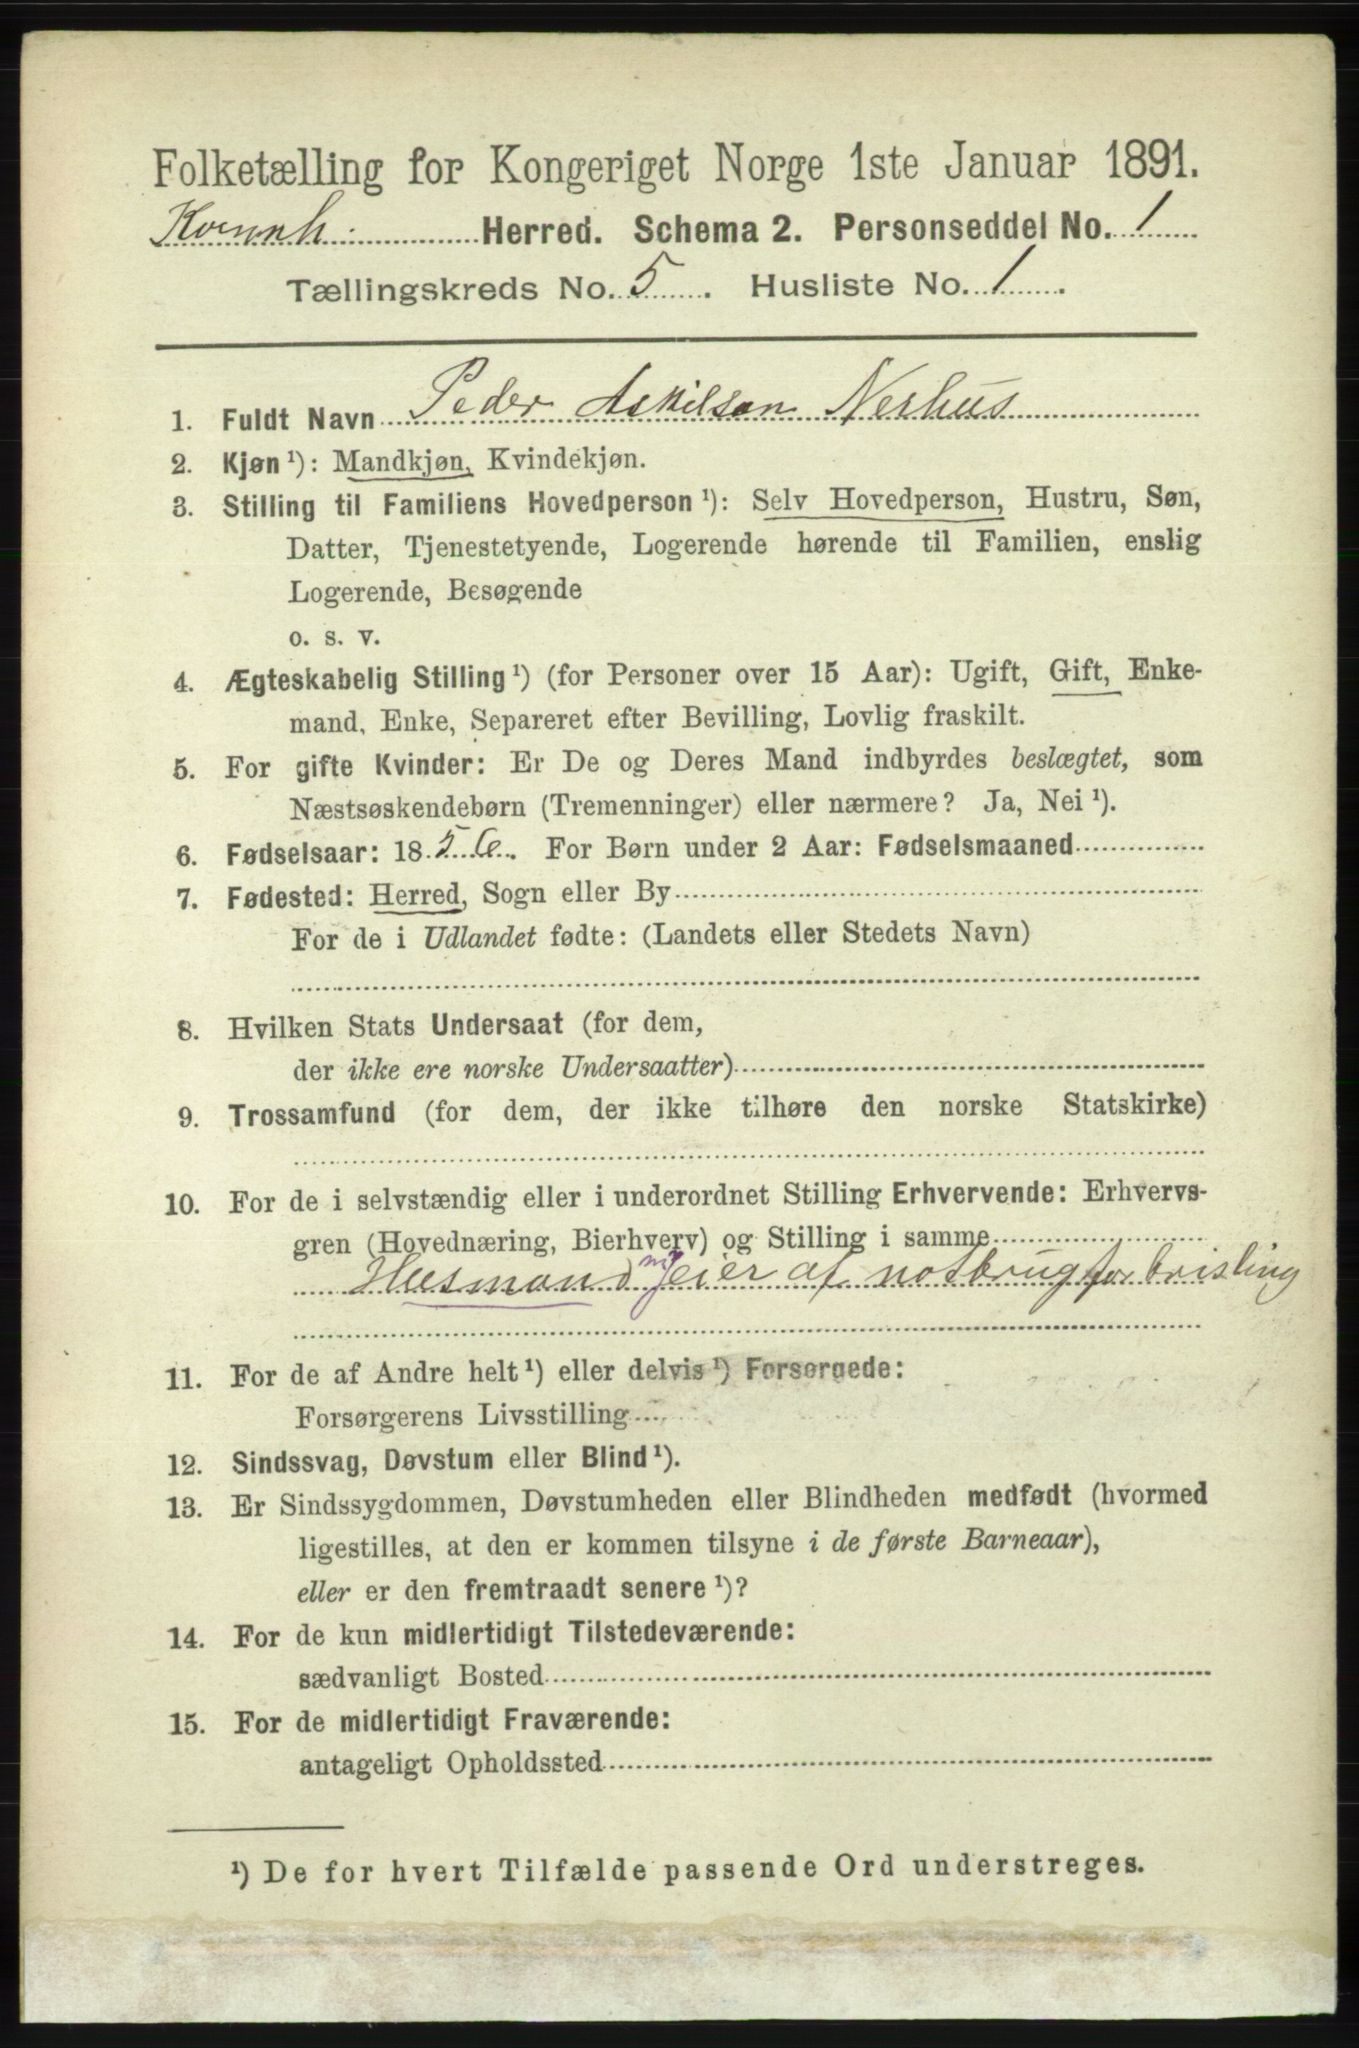 Folketælling for Kongeriget Norge 1ste Januar 1891.
Kvinnh. Herred. Schema 2. Personseddel No. 1
Tællingskreds No. 5. Husliste No. 1.
1. Fuldt Navn Peder Askilson Nerhus
2. Kjøn ¹): Mandkjøn, Kvindekjøn.
3. Stilling til Familiens Hovedperson ¹): Selv Hovedperson, Hustru, Søn,
Datter, Tjenestetyende, Logerende hørende til Familien, enslig
Logerende, Besøgende
o. s. v.
4. Ægteskabelig Stilling ¹) (for Personer over 15 Aar): Ugift, Gift, Enke-
mand, Enke, Separeret efter Bevilling, Lovlig fraskilt.
5. For gifte Kvinder: Er De og Deres Mand indbyrdes beslægtet, som
Næstsøskendebørn (Tremenninger) eller nærmere? Ja, Nei ¹).
6. Fødselsaar: 1856. For Børn under 2 Aar: Fødselsmaaned
7. Fødested: Herred, Sogn eller By
For de i Udlandet fødte: (Landets eller Stedets Navn)
8. Hvilken Stats Undersaat (for dem,
der ikke ere norske Undersaatter)
9. Trossamfund (for dem, der ikke tilhøre den norske Statskirke)
10. For de i selvstændig eller i underordnet Stilling Erhvervende: Erhvervs-
gren (Hovednæring, Bierhverv) og Stilling i samme
Husmand m/ eier af notbrug for brisling
11. For de af Andre helt ¹) eller delvis ¹) Forsørgede:
Forsørgerens Livsstilling
12. Sindssvag, Døvstum eller Blind ¹).
13. Er Sindssygdommen, Døvstumheden eller Blindheden medfødt (hvormed
ligestilles, at den er kommen tilsyne i de første Barneaar),
eller er den fremtraadt senere ¹)?
14. For de kun midlertidigt Tilstedeværende:
sædvanligt Bosted
15. For de midlertidigt Fraværende:
antageligt Opholdssted
¹) De for hvert Tilfælde passende Ord understreges.